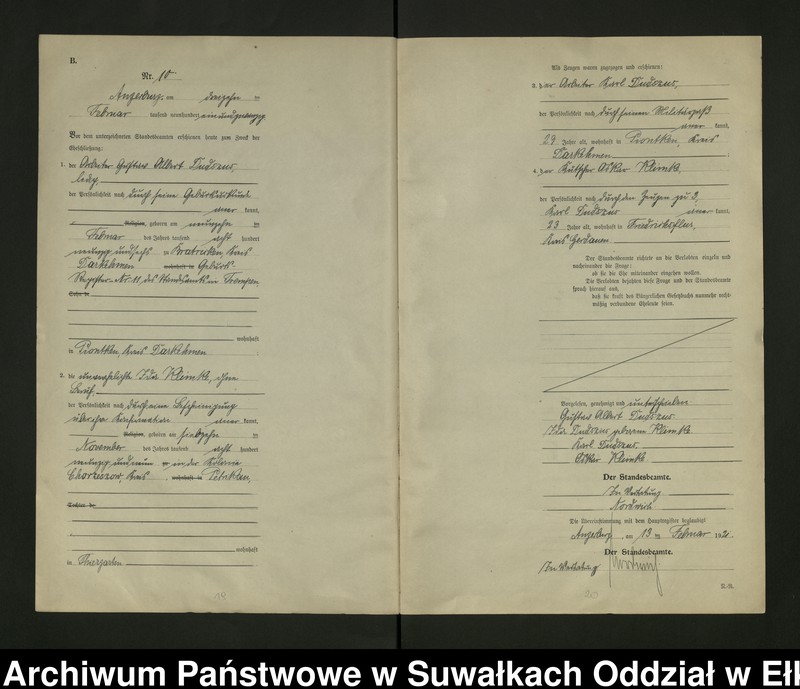 B.
Nr. 10
Angerburg, am dreizehn ten
Februar tausend neunhundert einundzwanzig
Vor dem unterzeichneten Standesbeamten erschienen heute zum Zweck der
Eheschließung:
1. der Arbeiter Gustav Albert Dudszus,
ledig
der Persönlichkeit nach durch seine Geburtsurkunde
kannt,
Religion, geboren am neunzehn ten
Februar des Jahres tausend acht hundert
neunzig und sechs zu Kreis
Darkehmen wohnhaft in Geburts-
Register-Nr. 11, des Standesamts in Trempen
Sohn de
wohnhaft
in Piontken, Kreis Darkehmen
2. die unverehelichte Ida Klimke, ohne
Beruf,
der Persönlichkeit nach durch eine Bescheinigung
über ihre Konfirmation kannt,
Religion, geboren am siebzehn ten
November des Jahres tausend acht hundert
neunzig und neun zu in der Kolonie
Kreis wohnhaft in
Tochter de
wohnhaft
in Thiergarten
19
Als Zeugen waren zugezogen und erschienen:
3. der Arbeiter Karl Dudszus,
der Persönlichkeit nach durch seinen Militärpaß
kannt,
29 Jahre alt, wohnhaft in Piontken, Kreis
Darkehmen
4. der Kutscher Oskar Klimke,
der Persönlichkeit nach durch den Zeugen zu 3,
Karl Dudszus kannt,
33 Jahre alt, wohnhaft in
Kreis Gerdauen
Der Standesbeamte richtete an die Verlobten einzeln und
nacheinander die Frage:
ob sie die Ehe miteinander eingehen wollen.
Die Verlobten bejahten diese Frage und der Standesbeamte
sprach hierauf aus,
daß sie kraft des Bürgerlichen Gesetzbuchs nunmehr recht-
mäßig verbundene Eheleute seien.
Vorgelesen, genehmigt und unterschrieben
Gustav Albert Dudszus
Ida Dudszus geborene Klimke
Karl Dudszus
Oskar Klimke
Der Standesbeamte.
In Vertretung
Die Übereinstimmung mit dem Hauptregister beglaubigt
Angerburg, am 13 ten Februar 1921.
Der Standesbeamte.
In Vertretung
B.-N.
20
Archiwum Państwowe w Suwałkach Oddział w Ełk